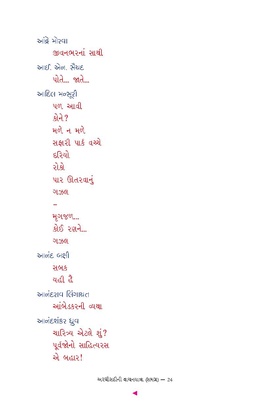 આંદ્રે મોરવા
જીવનભરનાં સાથી
આઈ. એન. સૈયદ
પોતે... જાતે...
આદિલ મન્સૂરી
પળ આવી
કોને?
મળે ન મળે
સફારી પાર્ક વચ્ચે
દરિયો
રોકો
પાર ઊતરવાનું
ગઝલ
–
મૃગજળ...
કોઈ રણને...
ગઝલ
આનંદ બક્ષી
સબક
વહી હૈ
આનંદરાવ લિંગાયત
આંબેડકરની વ્યથા
આનંદશંકર ધ્રુવ
ચારિત્ર્ય એટલે શું?
પૂર્વજોનો સાહિત્યરસ
એ બહાર!
અરધી સદીની વાચનયાત્રા (ક્રમાંક) — 24